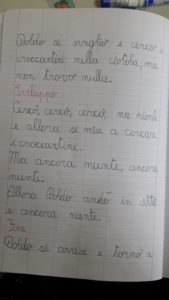 Poldo si svegliò e cercò i
croccantini nella ciotola, ma
non trovò nulla.
Sviluppo
Cercò, cercò, cercò, ma niente
e allora si mise a cercare
i croccantini.
Ma ancora niente, ancora
niente.
Allora Poldo andò in città
e ancora niente.
Fine
Poldo si arrese e tornò a